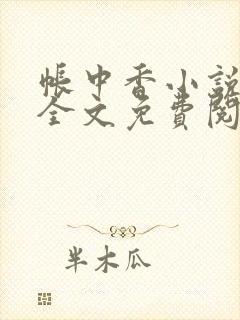 帳中香小說
全文免費閱
半木瓜